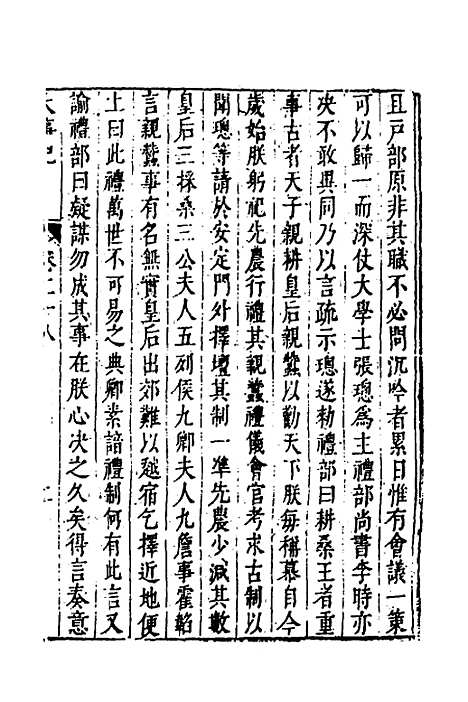 且戸部原非其職不必問沉吟者累日惟有會議一策
可以歸一而深仗大學士張璁爲主禮部尚書李時亦
决不敢異同乃以言疏示璁遂勅禮部曰耕桑王者重
事古者天子親耕皇后親蠶以勤天下朕每稱慕自今
歲始朕躬祀先農行禮其親蠶禮儀會官考求古制以
聞璁等請於安定門外擇壇其制一凖先農少减其數
皇后三採桑三公夫人五列侯九卿夫人九詹事霍韜
言親蠶事有名無實皇后出郊難以越宿乞擇近地便
上曰此禮萬世不可易之典卿素諳禮制何有此言又
諭禮部曰疑謀勿成其事在朕心决之久矣得言奏意
大事記 卷二十八